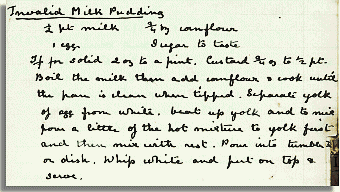 Invalid Milk Pudding
½ pt milk ¾ oz cornflour
1 egg. Sugar to taste
If for solid 2 oz to a pint. Custard ¾ oz to ½ pt.
Boil the milk then add cornflour & cook until
the pan is clean when tipped. Separate yolk
of egg from white, beat up yolk and to mix
pour a little of the hot mixture to yolk first
and then mix with rest. Pour into tumbler
or dish. Whip white and put on top &
serve.